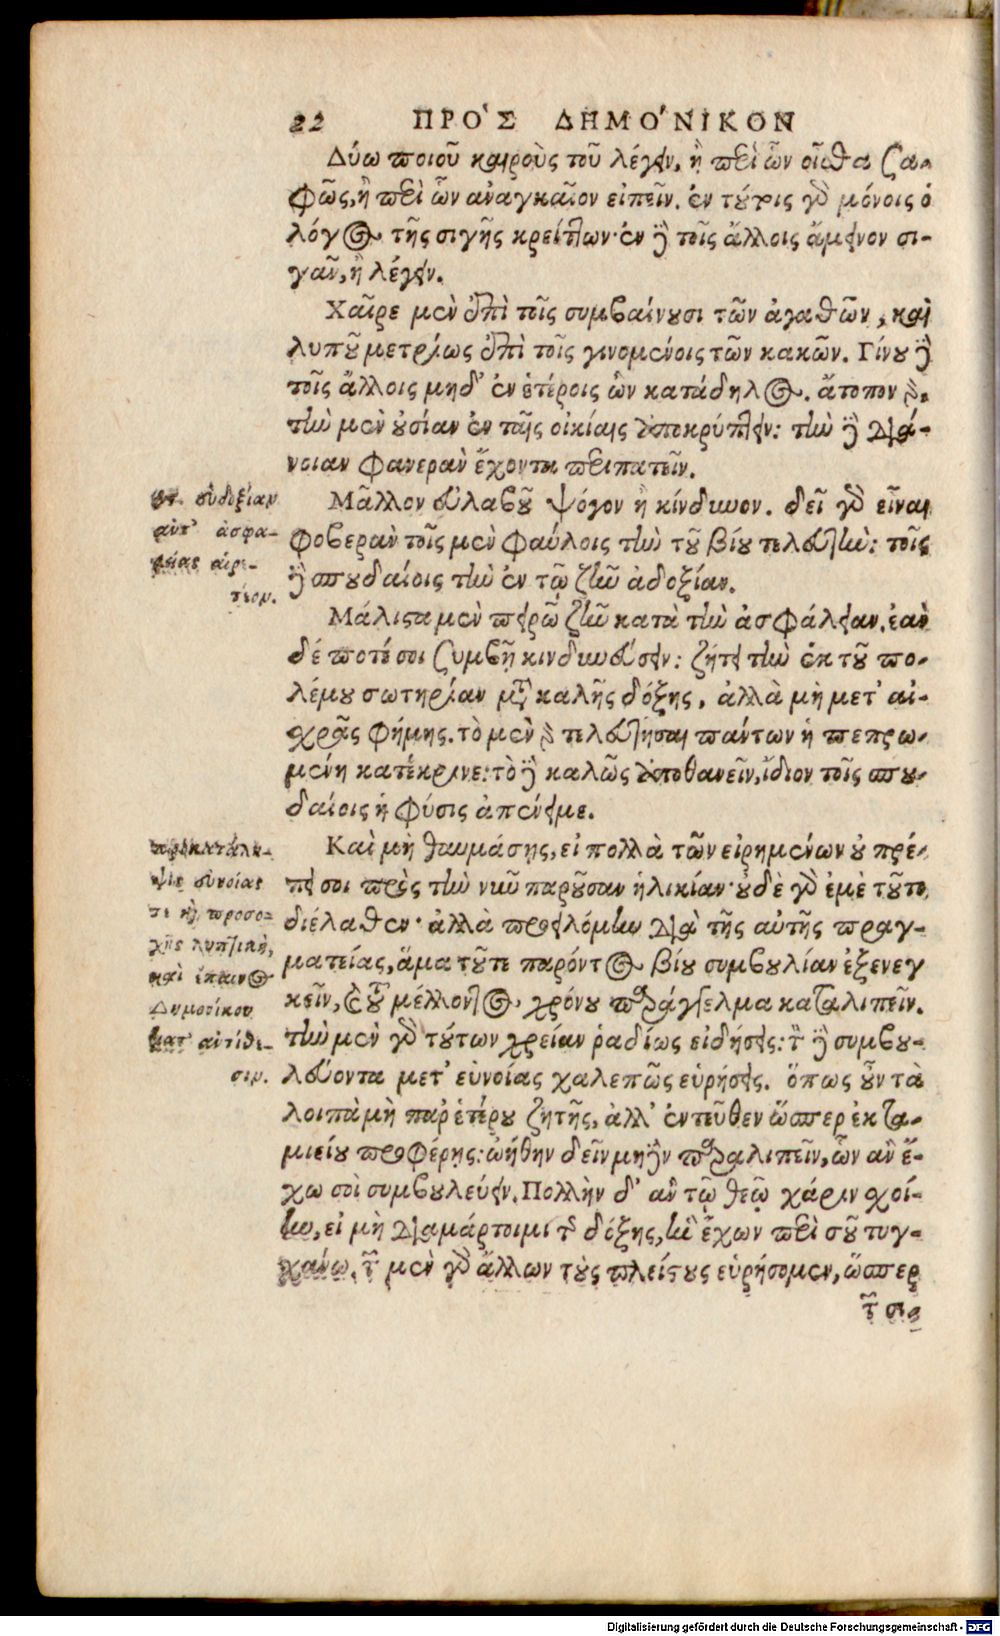 22 ΠΡΟ῀Σ ΔΗΜΟ´ΝΙΚΟΝ
Δύω ποιοῦ καιροὺς τοῦ λέγειν, ἢ περὶ ὧν οἶσθα σα-
φῶς, ἢ περὶ ὧν ἀναγκαῖον εἰπεῖν. ἐν τούτοις γὸ μόνοις ὁ
λόγος τῆς σιγῆς κρείττων· ἐν δὲ τοῖς ἄλλοις ἄμεινον σι-
γᾶν, ἢ λέγειν.
Χαῖρε μὲν ἐπὶ τοῖς συμβαίνουσι τῶν ἀγαθῶν, καὶ
λυποῦ μετρίως ἐπὶ τοῖς γινομένοις τῶν κακῶν. Γίνου δὲ
τοῖς ἄλλοις μηδ' ἐν ἑτέροις ὢν κατάδηλος. ἄτοπον γὸ
τὴν μὲν οὐσίαν ἐν ταῖς οἰκίαις ἀποκρύπτειν: τὴν δὲ διά-
νοιαν φανερὰν ἔχοντα περιπατεῖν.
Μᾶλλον εὐλαβοῦ ψόγον ἢ κίνδυνον. δεῖ γὸ εἶναι
φοβερὰν τοῖς μὲν φαύλοις τὴν τοῦ βίου τελευτήν: τοῖς
δὲ σπουδαίοις τὴν ἐν τῷ ζῆν ἀδοξίαν.
Μάλιστα μὲν πειρῶ ζῆν κατὰ τὴν ἀσφάλειαν, ἐὰν
δέ ποτέ σοι συμβῇ κινδυνεύσειν: ζήτει τὴν ἐκ τοῦ πο-
λέμου σωτηρίαν μετὰ καλῆς δόξης, ἀλλὰ μὴ μετ' αἰ-
χρᾶς φήμης. τὸ μὲν γὸ τελευτῆσαι πάντων ἡ πεπρω-
μένη κατέκρινε: τὸ δὲ καλῶς ἀποθανεῖν, ἴδιον τοῖς σπου-
δαίοις ἡ φύσις ἀπένειμε.
Καὶ μὴ θαυμάσῃς, εἰ πολλὰ τῶν εἰρημένων οὐ πρέ-
πει σοι πρὸς τὴν νῦν παροῦσαν ἡλικίαν· οὐδὲ γὸ ἐμὲ τοῦτο
διέλαθεν· ἀλλὰ προειλόμην διὰ τῆς αὐτῆς πραγ-
ματείας, ἅμα τοῦτε παρόντος βίου συμβουλίαν ἐξενεγ
κεῖν, καὶ τοῦ μέλλοντος χρόνου παράγγελμα καταλιπεῖν.
τὴν μὲν γὸ τούτων χρείαν ῥαδίως εἰδήσεις: τὸν δὲ συμβου-
λεύοντα μετ' εὐνοίας χαλεπῶς εὑρήσεις. ὅπως οὖν τὰ
λοιπὰ μὴ παρ' ἑτέρου ζητῇς, ἀλλ' ἐντεῦθεν ὥσπερ ἐκ τα-
μιείου προφέρῃς: ᾠήθην δεῖν μηδὲν παραλιπεῖν, ὧν ἂν ἔ-
χω σοὶ συμβουλεύειν. Πολλὴν δ' ἂν τῷ θεῷ χάριν σχοί-
ην, εἰ μὴ διαμάρτοιμι τῆς δόξης, ἣν ἔχων περὶ σοῦ τυγ-
χάνω. τῶν μὲν γὸ ἄλλων τοὺς πλείστους εὑρήσομεν, ὥσπερ
τῶν σι-
ὅτι εὐδοξίαν
αὐτ' ἀσφα-
λείας αἱρε-
τέον.
προκατάλη-
ψις εὐνοίας
τε καὶ προσο-
χῆς ληπτικὴ,
καὶ ἔπαινος
Δημονίκου
κατ' ἀντίθε-
σιν.
Digitalisierung gefördert durch die Deutsche Forschungsgemeinschaft - DFG